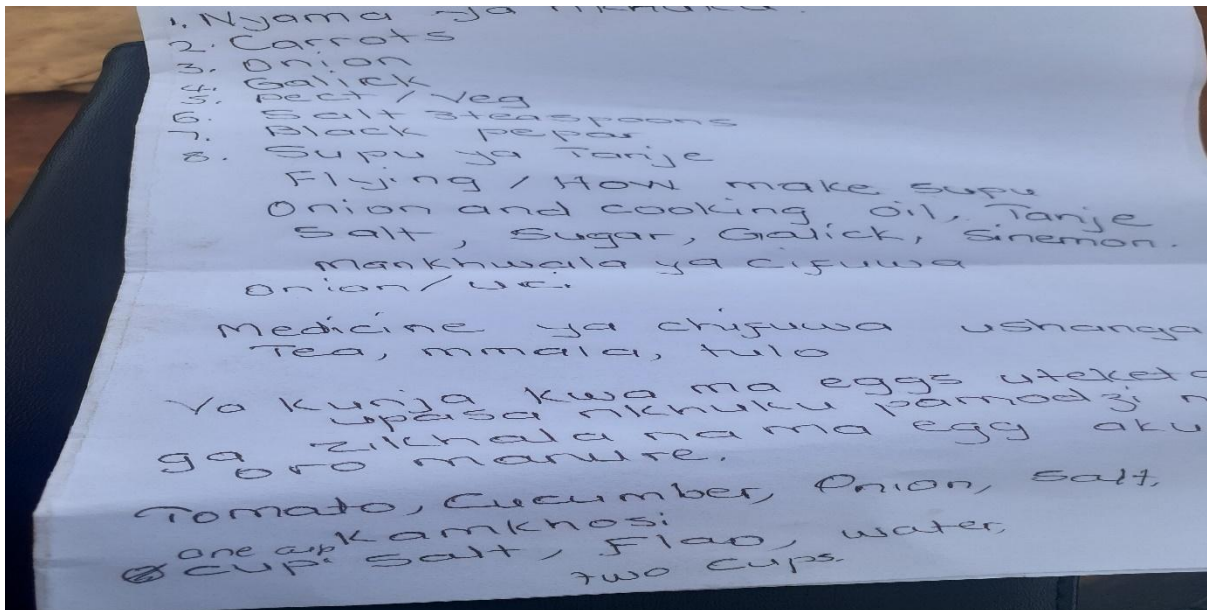 1. Nyama ya nkhuku.
2. Carrots
3. Onion
4. Galick
5. Pect / Veg
6. Salt 3teaspoons
7. Black pepar
8. Supu ya Tanje
Flying / How make supu
Onion and cooking oil, Tanje
Salt, Sugar, Galick, Sinemon.
Mankhwala ya cifuwa
Onion/
Medicine ya chifuwa ushanga
Tea, mmala, tulo
Va kunja kwa ma eggs uteketa
upasa nkhuku pamodzi
ga zikhala na ma egg aku
oro manure.
Tomato, Cucumber, Onion, Salt,
Kamkhosi
one cup
cup. Salt, Flao, water,
two cups.